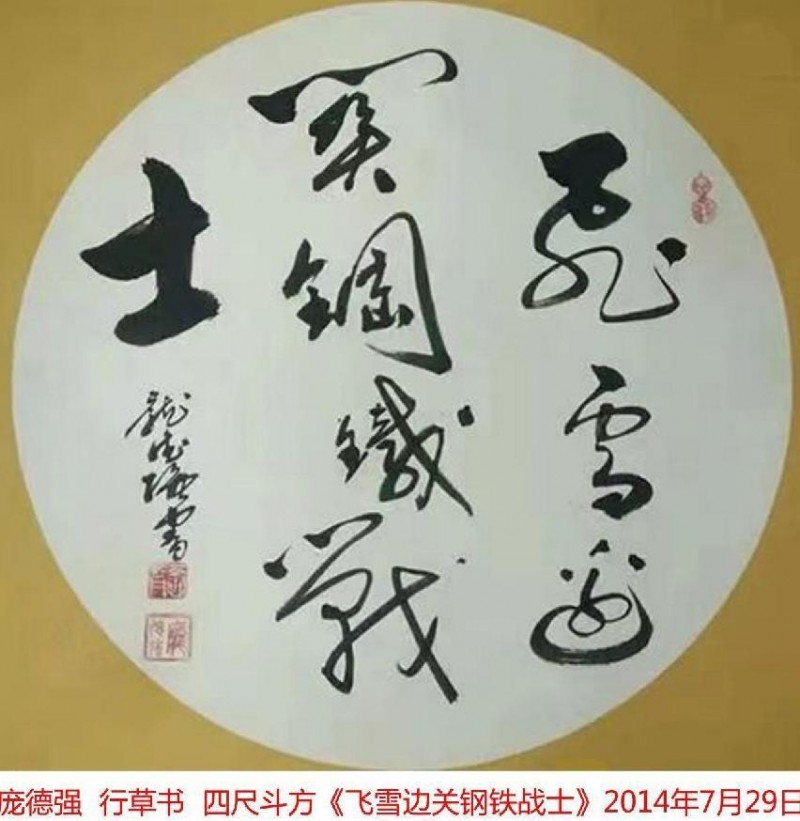 飛雪邊
關鋼鐵戰
士
龐德強書
庞德强 行草书 四尺斗方《飞雪边关钢铁战士》2014年7月29日